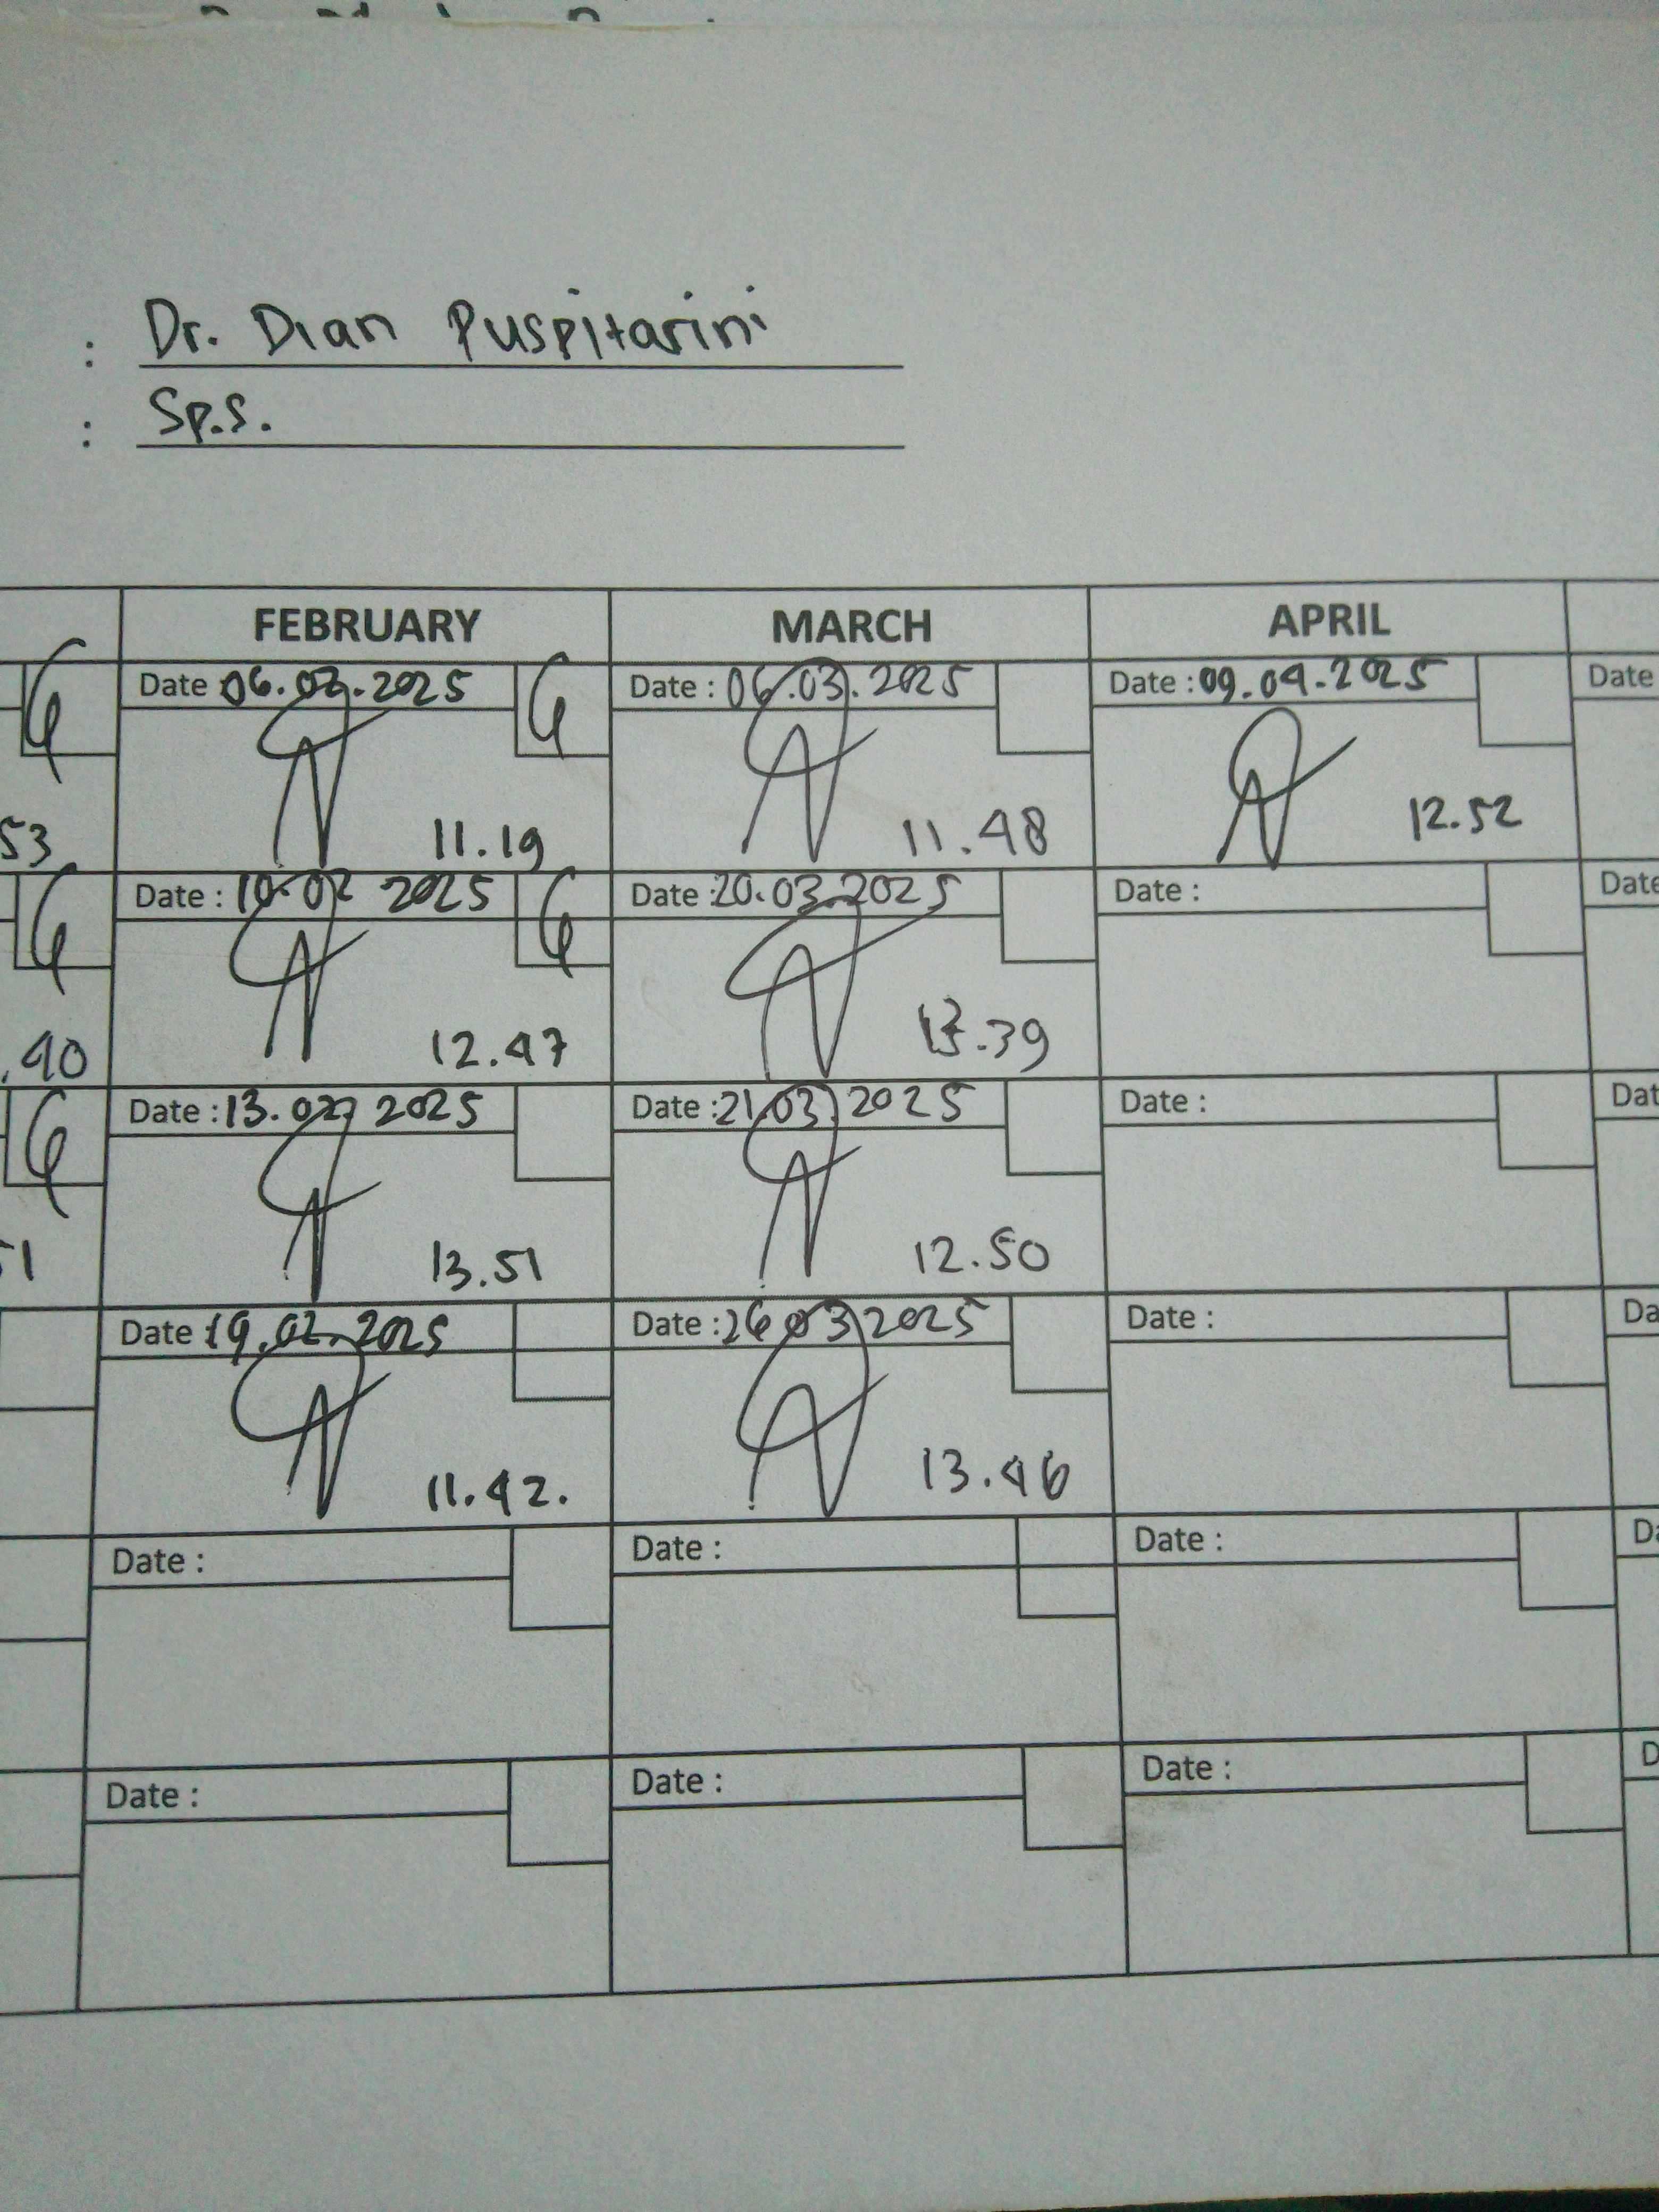 : Dr. Dian Puspitarini
: Sp.S.
FEBRUARY MARCH APRIL
Date 06.02.2025 Date : 06.03.2025 Date : 09.04.2025 Date
53 11.19 11.48 12.52
Date : 10.02 2025 Date : 20.03.2025 Date : Date
.40 12.47 13.39
Date : 13.02 2025 Date : 21.03.2025 Date : Dat
51 13.51 12.50
Date : 19.02.2025 Date : 26.03.2025 Date : Da
11.42. 13.46
Date : Date : Date : Da
Date : Date : Date : D